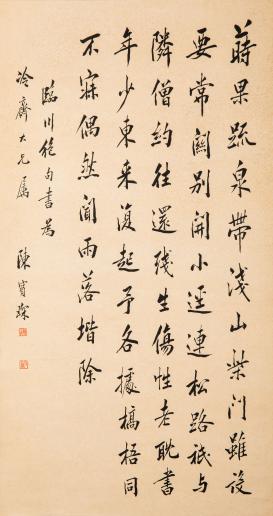 蒔果疏泉帶淺山柴門雖設
要常關別開小逕連松路祇与
隣僧約往還殘生傷性老耽書
年少東来復起予各據槁梧同
不寐偶然聞雨落堦除
臨川絶句書為
冷齋大兄属
陳寳琛